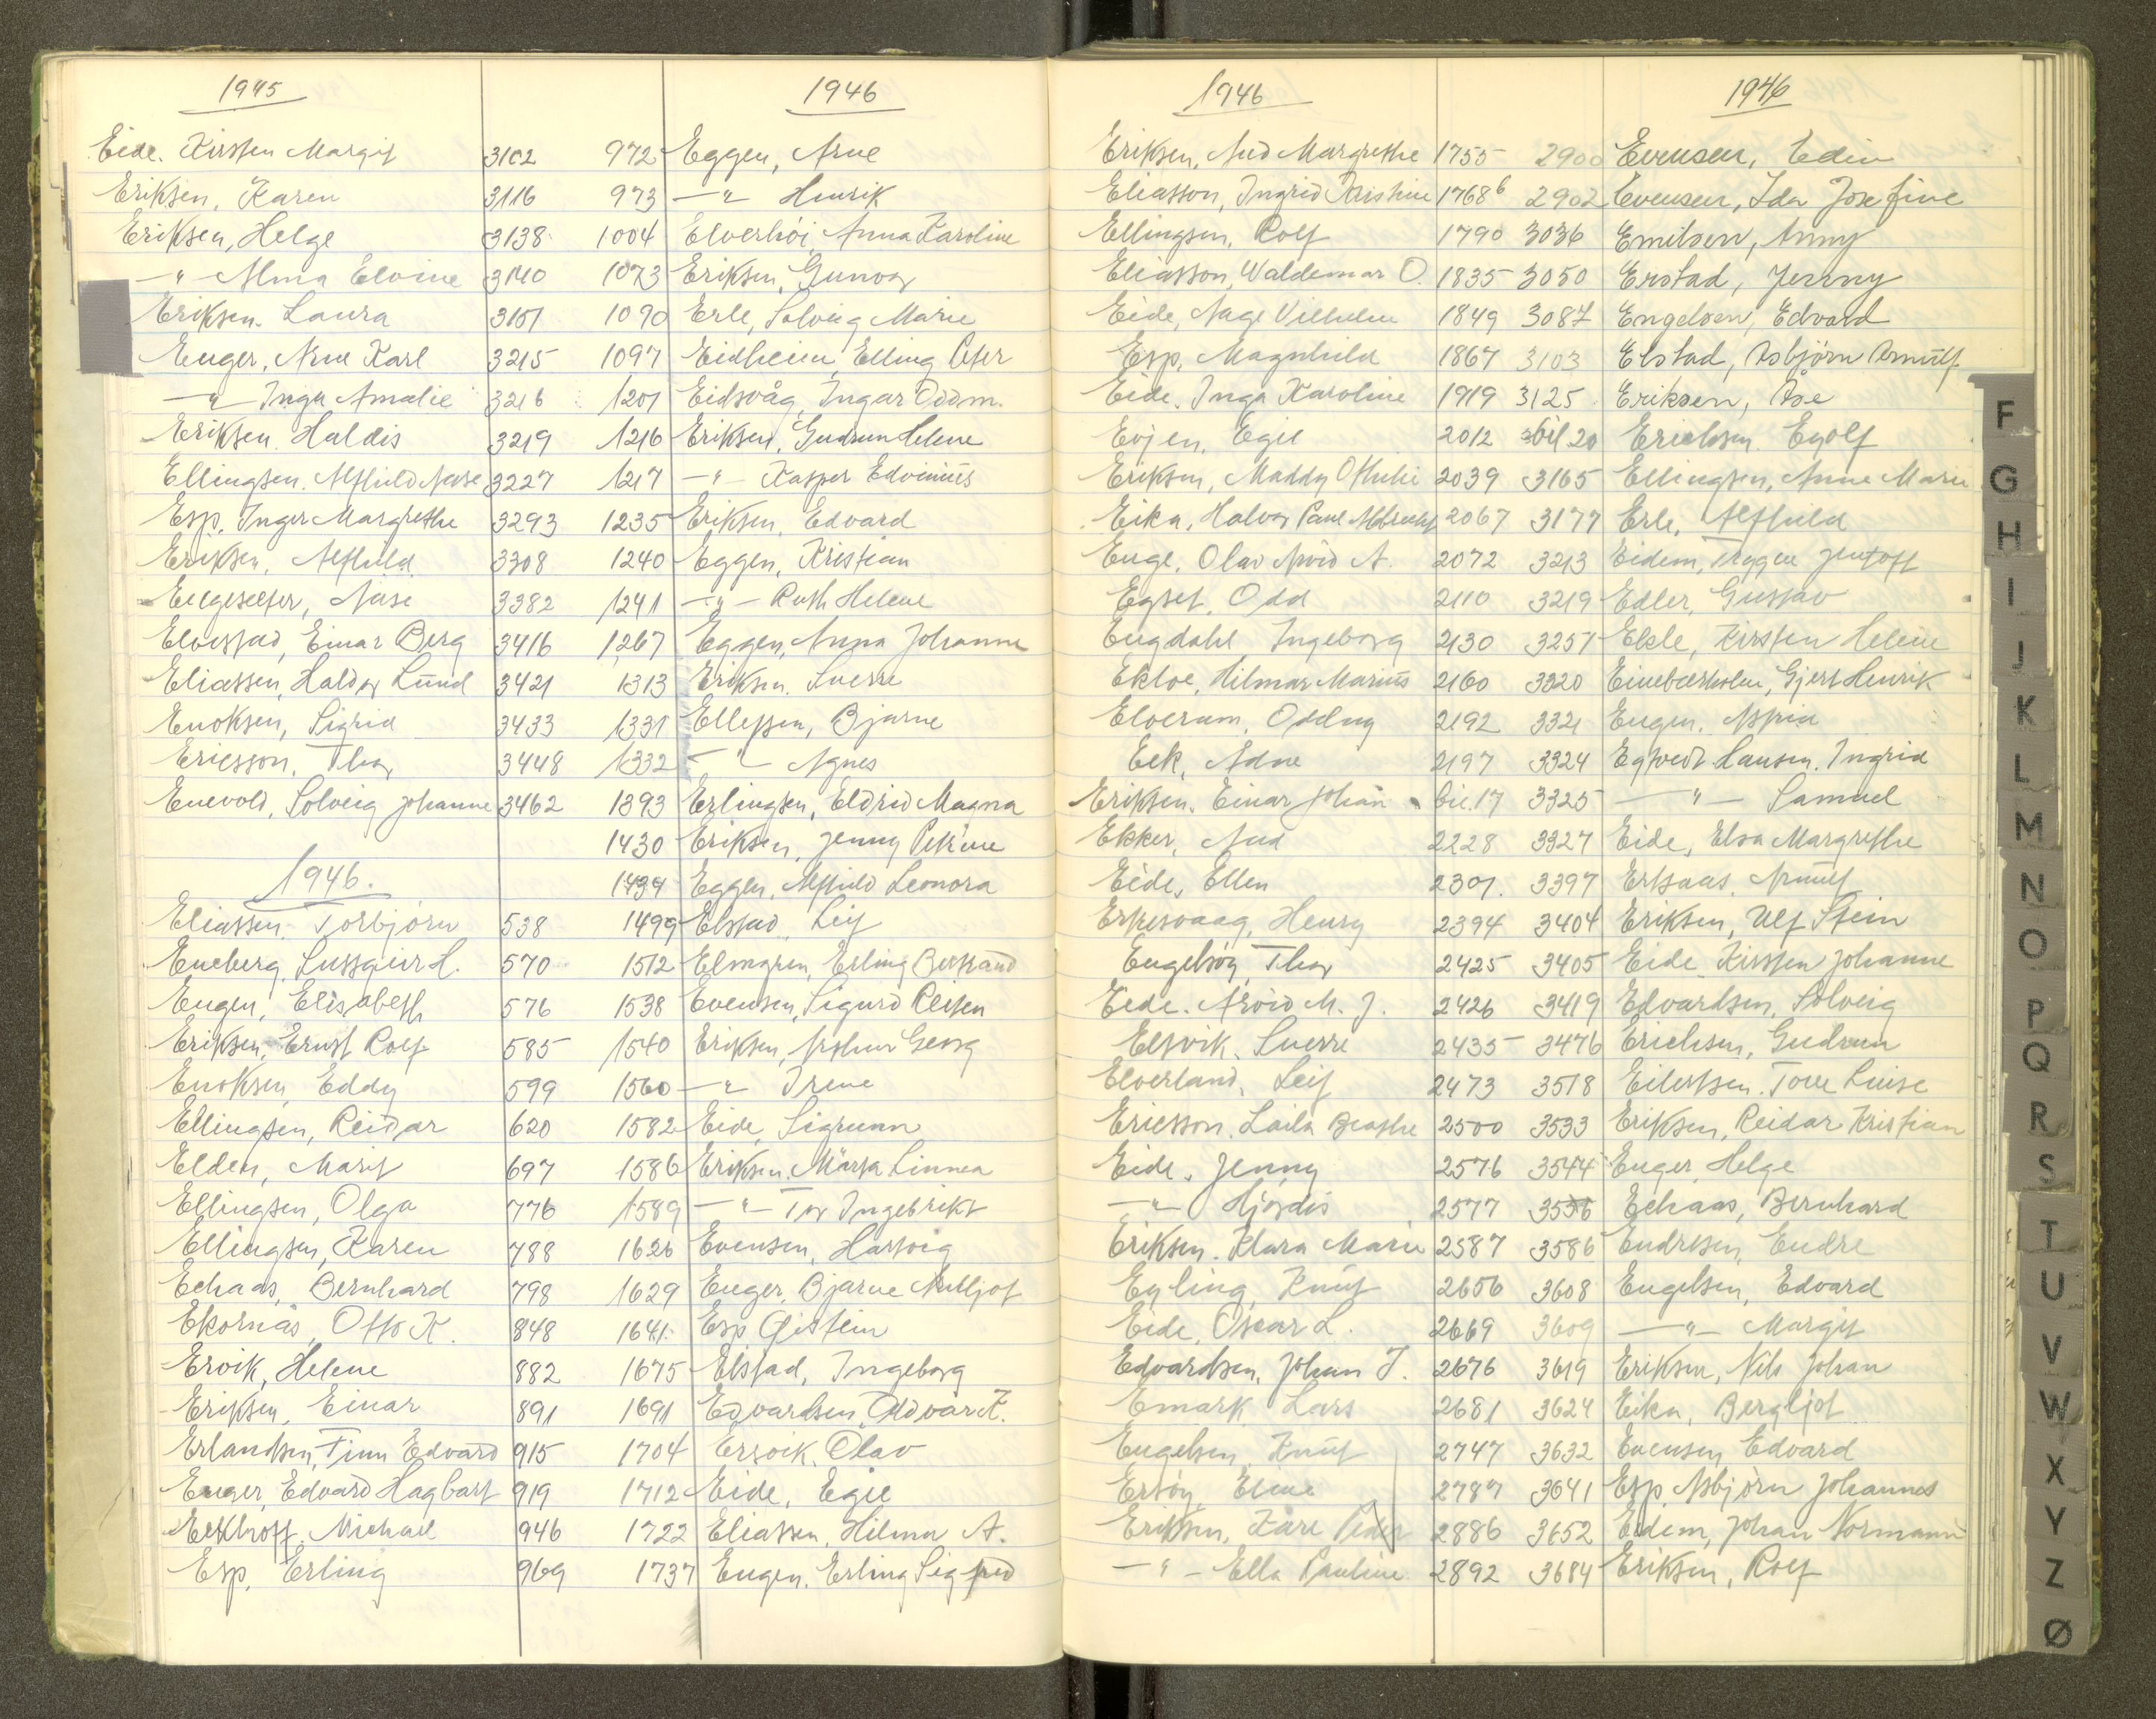 1945
Eide. Kirsten Margit 3102
Eriksen, Karen 3116
Eriksen, Helge 3138
—"— Alma Elvine 3140
Eriksen. Laura 3151
Enger, Arne Karl 3215
—"— Inga Amalie 3216
Eriksen Haldis 3219
Ellingsen. Alfhild Aase 3227
Esp. Inger Margrethe 3293
Eriksen, Alfhild 3308
Aase 3382
Elvestad, Einar Berg 3416
Eliassen, Haldor Lund 3421
Enoksen, Sigrid 3433
Ericsson, Thor 3448
Enevold, Solveig Johanne 3462
1946.
Eliassen. Torbjörn 538
Eneberg, L. 570
Engen, Elisabeth 576
Eriksen, Ernst Rolf 585
Enoksen, Eddy 599
Ellingsen, Reidar 620
Elden, Marit 697
Ellingsen, Olga 776
Ellingsen, Karen 788
Echaas, Bernhard 798
Ekornås, Otto K. 848
Ervik, Helene 882
Eriksen, Einar 891
Erlandsen, Finn Edvard 915
Enger, Edvard Hagbart 919
Eckhoff, Michael 946
Esp, Erling 969
1946
972 Eggen, Arne
973 —"— Henrik
1004 Elverhöi, Anna Karoline
1073 Eriksen, Gunvor
1090 Erle, Solveig Marie
1097 Eidheim, Elling Peter
1201 Eidsvåg, Ingar Oddm.
1216 Eriksen, Gudrun Helene
1217 —"— Kasper Edvinius
1235 Eriksen, Edvard
1240 Eggen, Kristian
1241 —"— Ruth Helene
1267 Eggen, Anna Johanne
1313 Eriksen. Sverre
1331 Ellefsen, Bjarne
1332 —"— Agnes
1393 Erlingsen, Eldrid Magna
1430 Eriksen, Jenny Petrine
1434 Eggen, Alfhild Leonora
1499 Elstad, Leif
1512 Elmgren, Erling
1538 Evensen, Sigurd Reisen
1540 Eriksen, Arthur Georg
1560 —"— Irene
1582 Eide, Sigrunn
1586 Eriksen. Märta Linnea
1589 —"— Tor Ingebrikt
1626 Evensen, Hartvig
1629 Enger, Bjarne
1641 Esp Öistein
1675 Elstad, Ingeborg
1691 Edvardsen, Oldvar K.
1704 Ersvik, Olav
1712 Eide, Egil
1722 Eliassen, Hilma A.
1737 Engen. Erling Sigfred
1946
Eriksen, Aud Margrethe 1755
Eliasson, Ingrid Kristine 1768 b
Ellingsen, Rolf 1790
Eliasson, Waldemar O. 1835
Eide, Aage Vilhelm 1849
Esp, Magnhild 1867
Eide. Inga Karoline 1919
Evjen, Egil 2012
Eriksen, Maddy Othilie 2039
Eika, Halvor Paul Albrecht 2067
Enge, Olav Arvid A. 2072
Egset, Odd 2110
Engdahl, Ingeborg 2130
Ekloe, Hilmar Marius 2160
Elverum, Oddny 2192
Eek, Adne 2197
Eriksen. Einar Johan bil. 17
Ekker, Aud 2228
Eide, Ellen 2301.
Henry 2394
Thor 2425
Eide. Arvid M. J. 2426
Elsvik, Sverre 2435
Elverland, Leif 2473
Ericsson, Laila Beathe 2500
Eide, Jenny 2576
—"— Hjördis 2577
Eriksen. Klara Marie 2587
Eyling, Knut 2656
Eide, Oscar L. 2669
Edvardsen, Johan J. 2676
Emark, Lars 2681
Engelsen, Knut 2747
Ersöy, Eline 2787
Eriksen, Kåre Peder 2886
—"— Ella Pauline 2892
1946
2900 Evensen, Edin
2902 Evensen, Ida Josefine
3036 Emilsen, Anny
3050 Erstad, Jenny
3087 Engelsen, Edvard
3103 Elstad, Asbjörn Arnulf
3125 Eriksen, Åse
bil 20 Erichsen. Egolf
3165 Ellingsen, Anne Marie
3177 Erle, Alfhild
3213 Eidem, Trygve
3219 Edler, Gustav
3251 Kirsten Helene
3320 Einebærholm, Gjert Henrik
3321 Engen, Astrid
3324 Egtvedt Hansen, Ingrid
3325 —"— Samuel
3327 Eide, Elsa Margrethe
3397 Ertsaas, Arnulf
3404 Eriksen, Ulf Stein
3405 Eide Kirsten Johanne
3419 Edvardsen, Solveig
3476 Erichsen, Gudrun
3518 Eilertsen. Tove Luise
3533 Eriksen, Reidar Kristian
3544 Enger, Helge
3556 Echaas, Bernhard
3586 Endresen, Endre
3608 Engelsen, Edvard
3609 —"— Margit
3619 Eriksen, Nils Johan
3624 Eika, Bergljot
3632 Evensen, Edvard
3641 Esp, Asbjörn Johannes
3652 Eidem, Johan Normann
3684 Eriksen, Rolf
F
G
H
I
J
K
L
M
N
O
P
Q
R
S
T
U
V
W
X
Y
Z
Ø